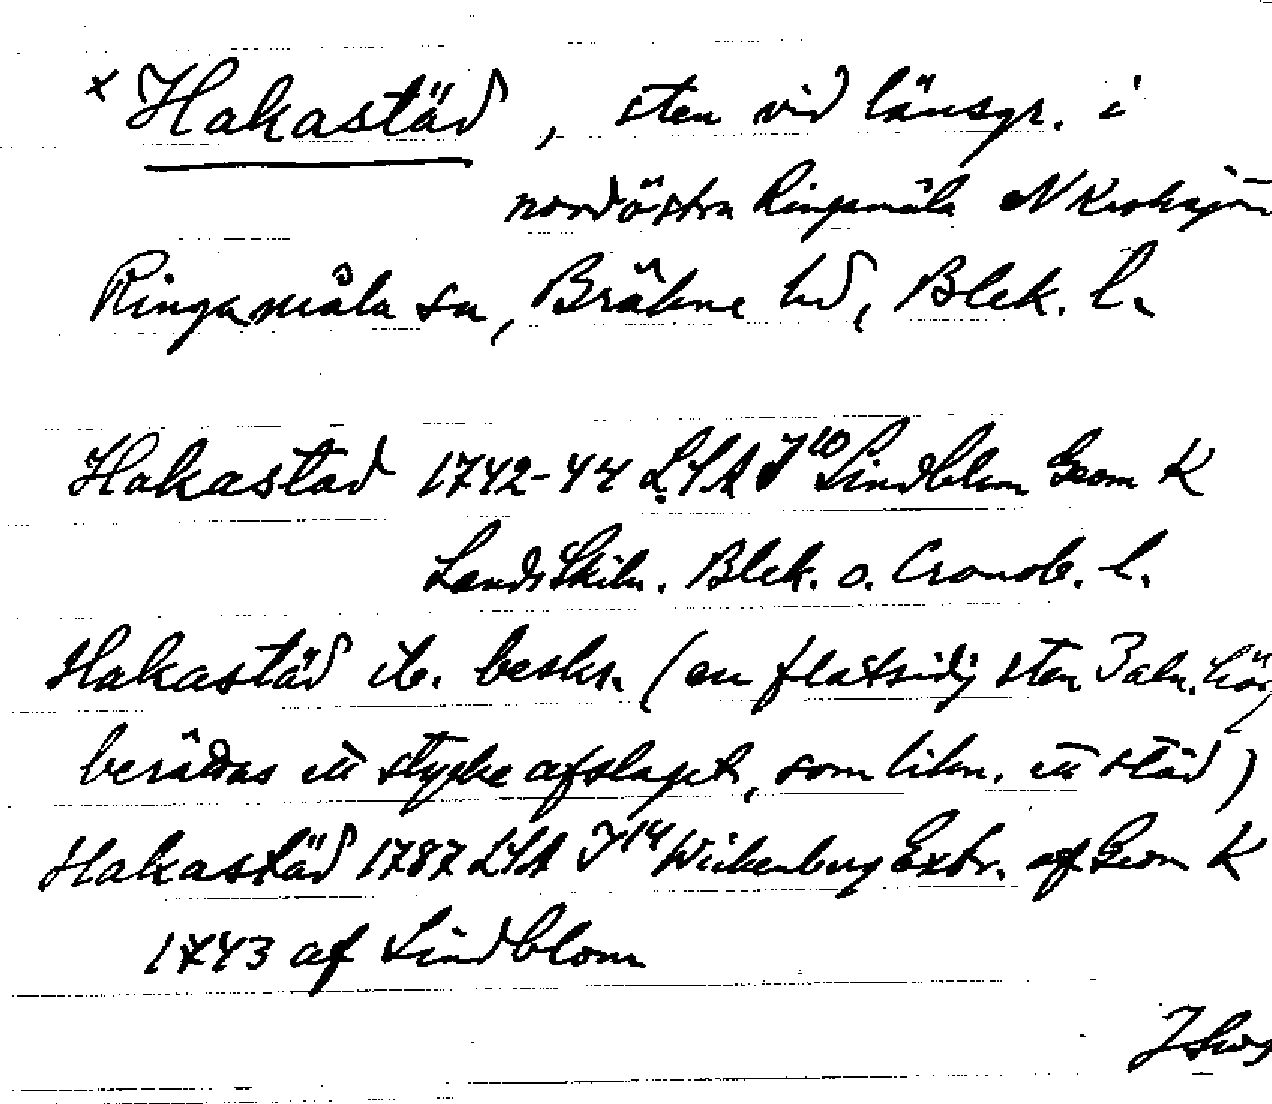 x Hakastäd, sten vid länsgr. i
nordöstra Ringamåla N Kroksjön
Ringamåla sn, Bräkne hd, Blek. l.
Hakastad 1742-44 LSA J10 Lindblom Geom K
LandsSkiln. Blek. o. Cronob. l.
Hakastäd ib. beskr. (en flatsidig sten 3 aln. hög
berättas ett stycke afslaget, som likn. ett städ)
Hakastäd 1787 LSA J14 Wickenberg Extr. af Geom K
1743 af Lindblom